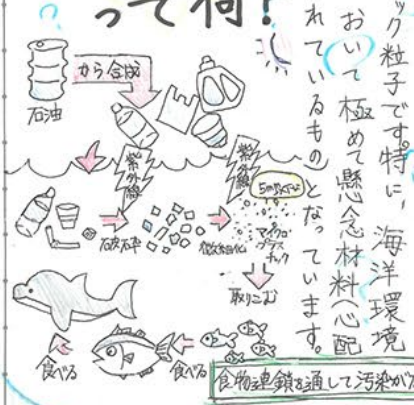 って何？
ック粒子です。特に、海洋環境
おいて極めて懸念材料（心配
れているものとなっています。
から合成
石油
紫外線
紫外線
5mm以下
破砕
微細化
マイクロプラスチック
取りこむ
食べる
食べる
食物連鎖を通して汚染が